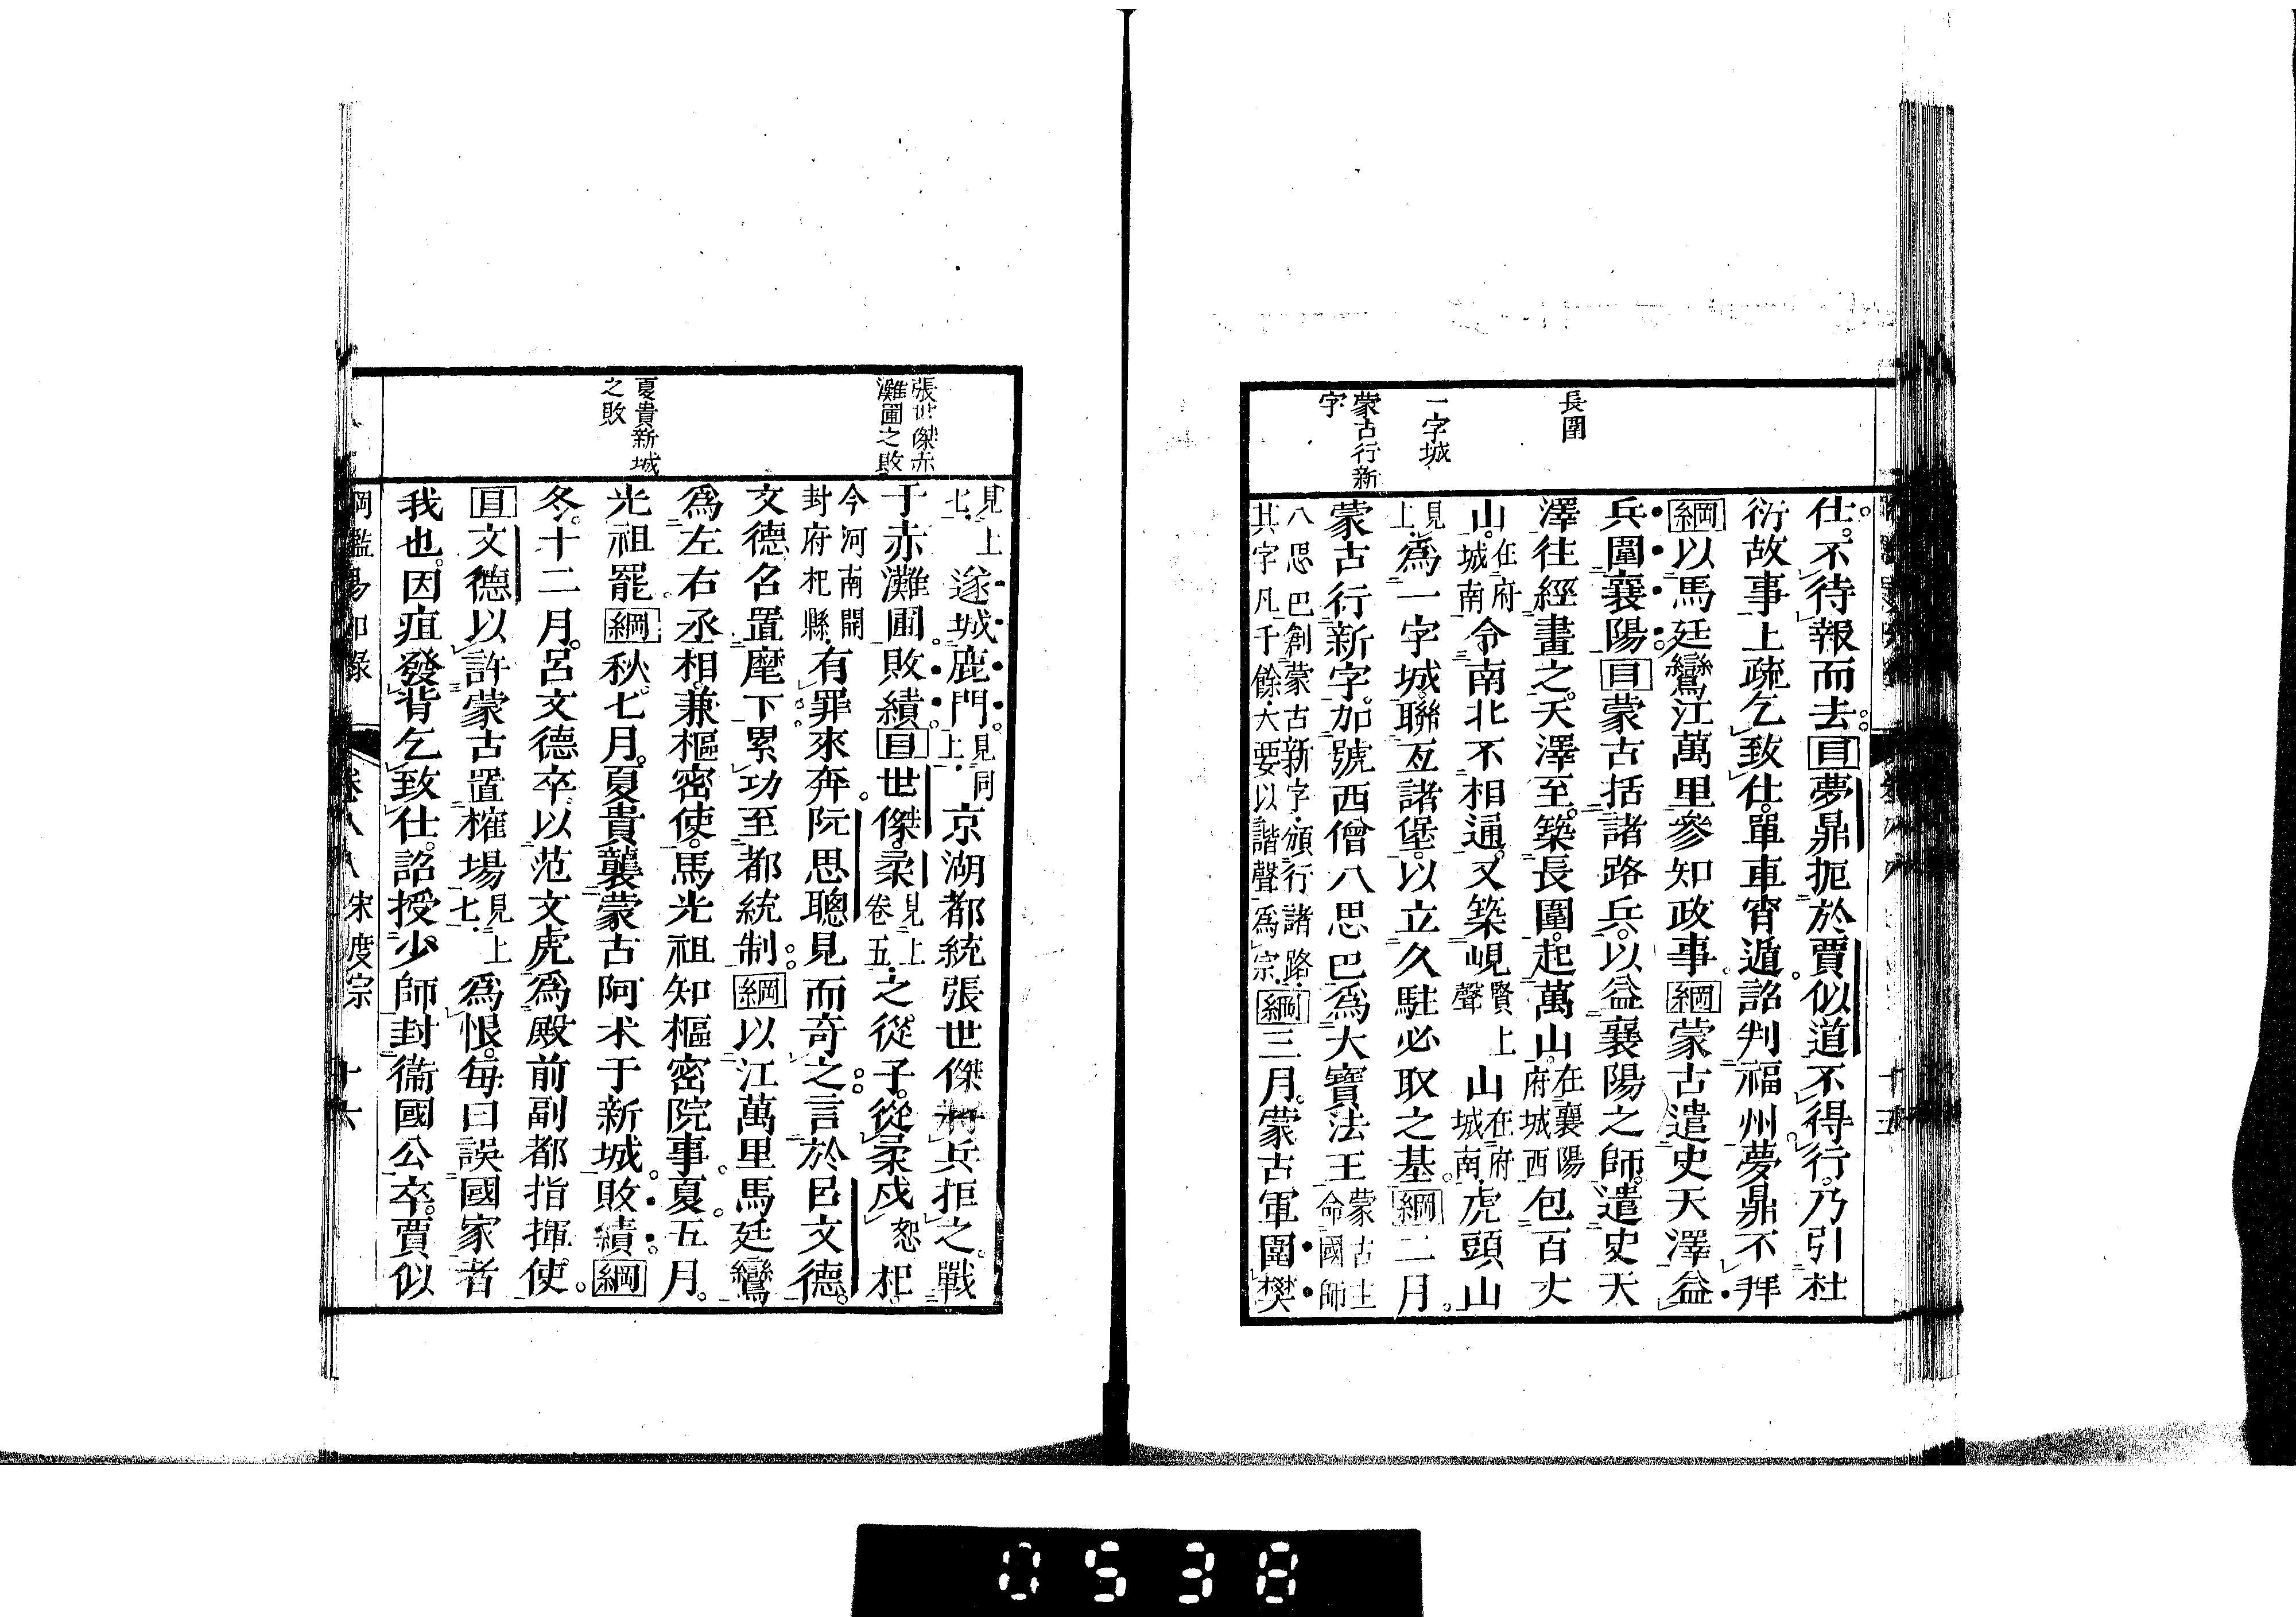 長圍
一字城
蒙古行新
字
仕。不待報而去。目夢鼎扼於賈似道不得行。乃引杜
衍故事上疏乞致仕。單車宵遁。詔判福州夢鼎不拜
綱以馬廷鸞江萬里參知政事。綱蒙古遣史天澤益
兵圍襄陽。目蒙古括諸路兵。以益襄陽之師。遣史天
澤往經畫之。天澤至。築長圍。起萬山。在襄陽府城西包百丈
山。在府城南令南北不相通。又築峴賢上聲山在府城南虎頭山
見上。爲一字城。聯亙諸堡。以立久駐必取之基。綱二月。
蒙古行新字。加號西僧八思巴爲大寶法王蒙古主命國師
八思巴創蒙古新字。頒行諸路。其字凡千餘。大要以諧聲爲宗。綱三月。蒙古軍圍樊
張世傑赤
灘圃之敗
夏貴新城
之敗
見上七。遂城鹿門。見同上。京湖都統張世傑將兵拒之。戰
于赤灘圃。敗績。目世傑。柔見上卷五。之從子。從柔戍杞。恕
今河南開封府杞縣。有罪來奔。阮思聰見而奇之。言於呂文德。
文德召置麾下累功至都統制。綱以江萬里馬廷鸞
爲左右丞相。兼樞密使。馬光祖知樞密院事。夏五月。
光祖罷。綱秋七月。夏貴襲蒙古阿朮于新城。敗績。綱
冬。十二月。呂文德卒。以范文虎爲殿前副都指揮使。
目文德以許蒙古置榷場見上七。爲恨。每曰誤國家者
我也。因疽發背乞致仕。詔授少師封衞國公卒。賈似
綱鑑易知録 卷八八 宋度宗 十六
0538